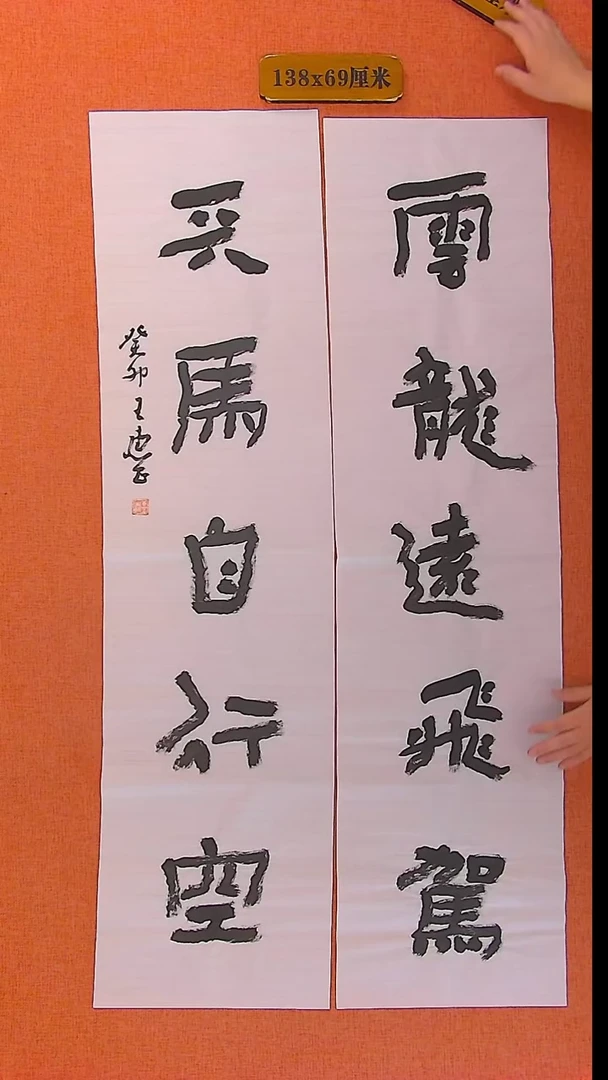 138x69厘米
雲龍遠飛駕
天馬自行空
癸卯王